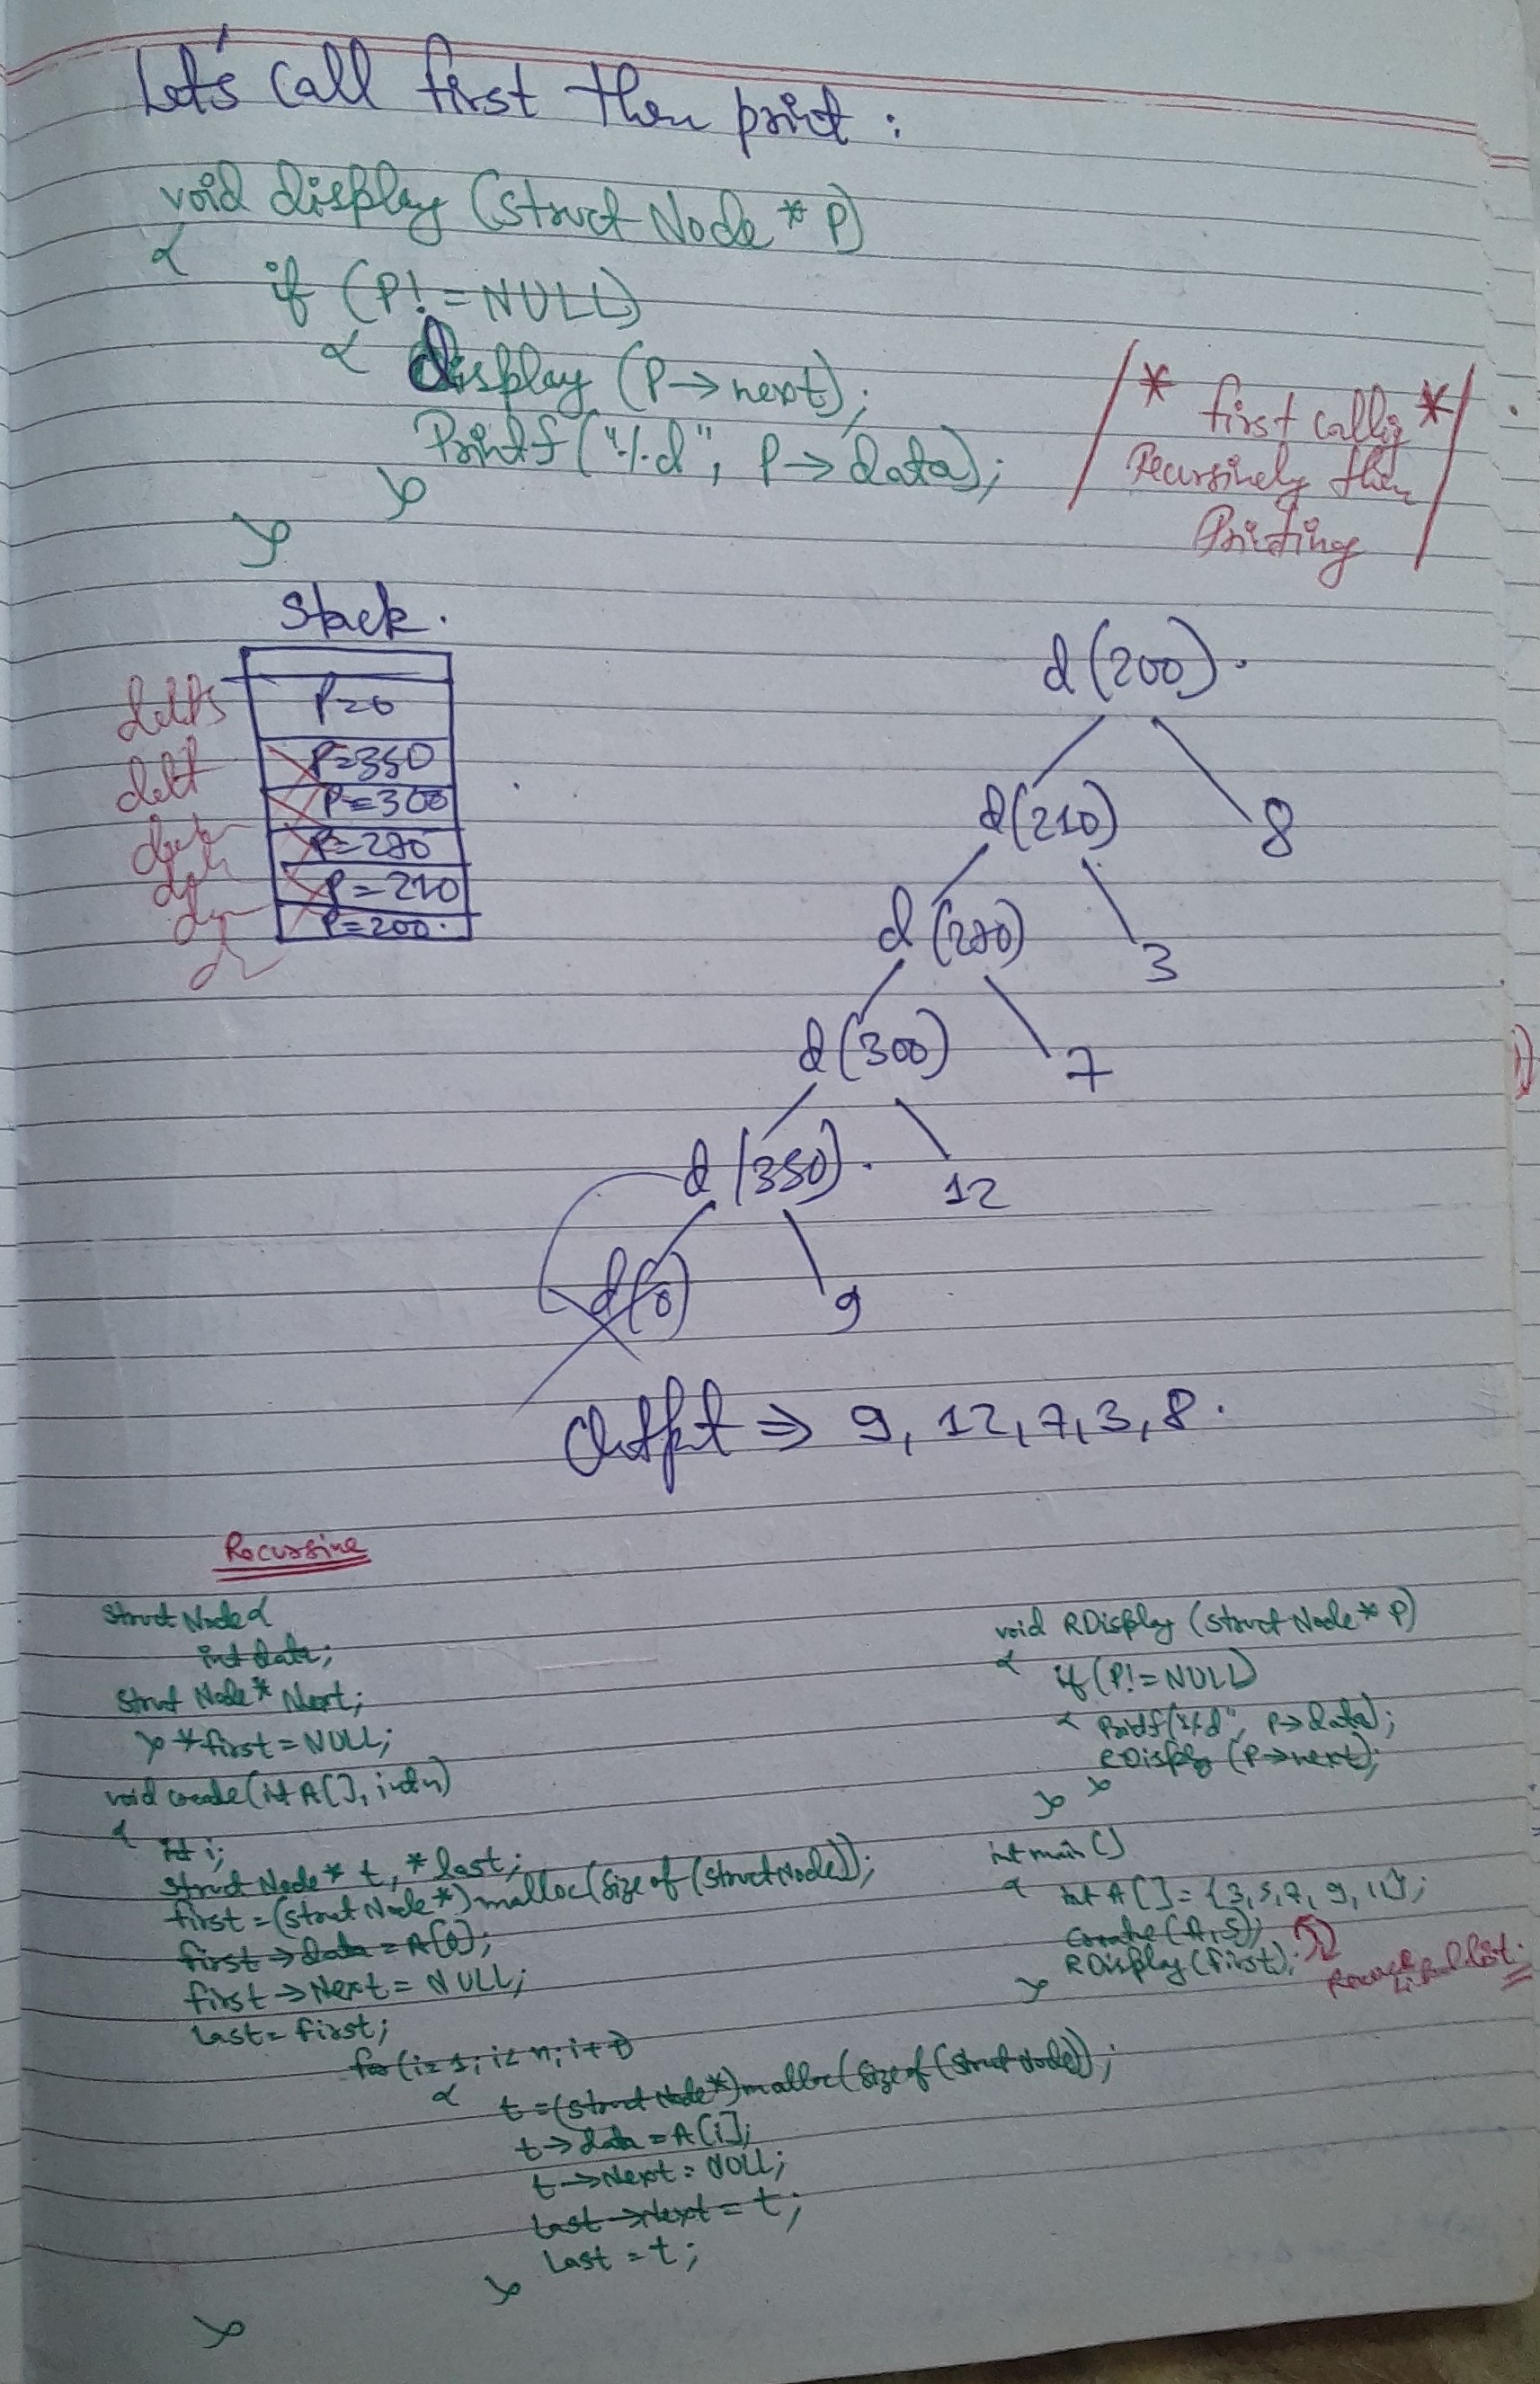 Let's call first then print :
void display (struct Node * P)
{
if (P! = NULL)
{ display (P→next);
Printf ("%d", P→data);
}
}
/* first callig */
Recursively then
Printing
Stack.
P=0
P=350
P=300
P=270
P=210
P=200.
d(200).
d(210)
8
d(270)
3
d(300)
7
d(350).
12
d(0)
9
Output ⇒ 9, 12, 7, 3, 8.
Recursive
struct Node {
int data;
struct Node * Next;
} *first = NULL;
void create (int A[], int n)
{
int i;
struct Node * t, * last;
first = (struct Node *) malloc (sizeof (struct Node));
first → data = A[0];
first → Next = NULL;
last = first;
for (i=1; i< n; i++)
{
t = (struct Node *) malloc (sizeof (struct Node));
t → data = A[i];
t → Next = NULL;
last → Next = t;
last = t;
}
}
void RDisplay (struct Node * P)
{ if (P! = NULL)
{ Printf ("%d", P→data);
RDisplay (P→next);
} }
int main ()
{ int A[] = {3, 5, 7, 9, 11};
create (A, 5);
RDisplay (first);
}
list.